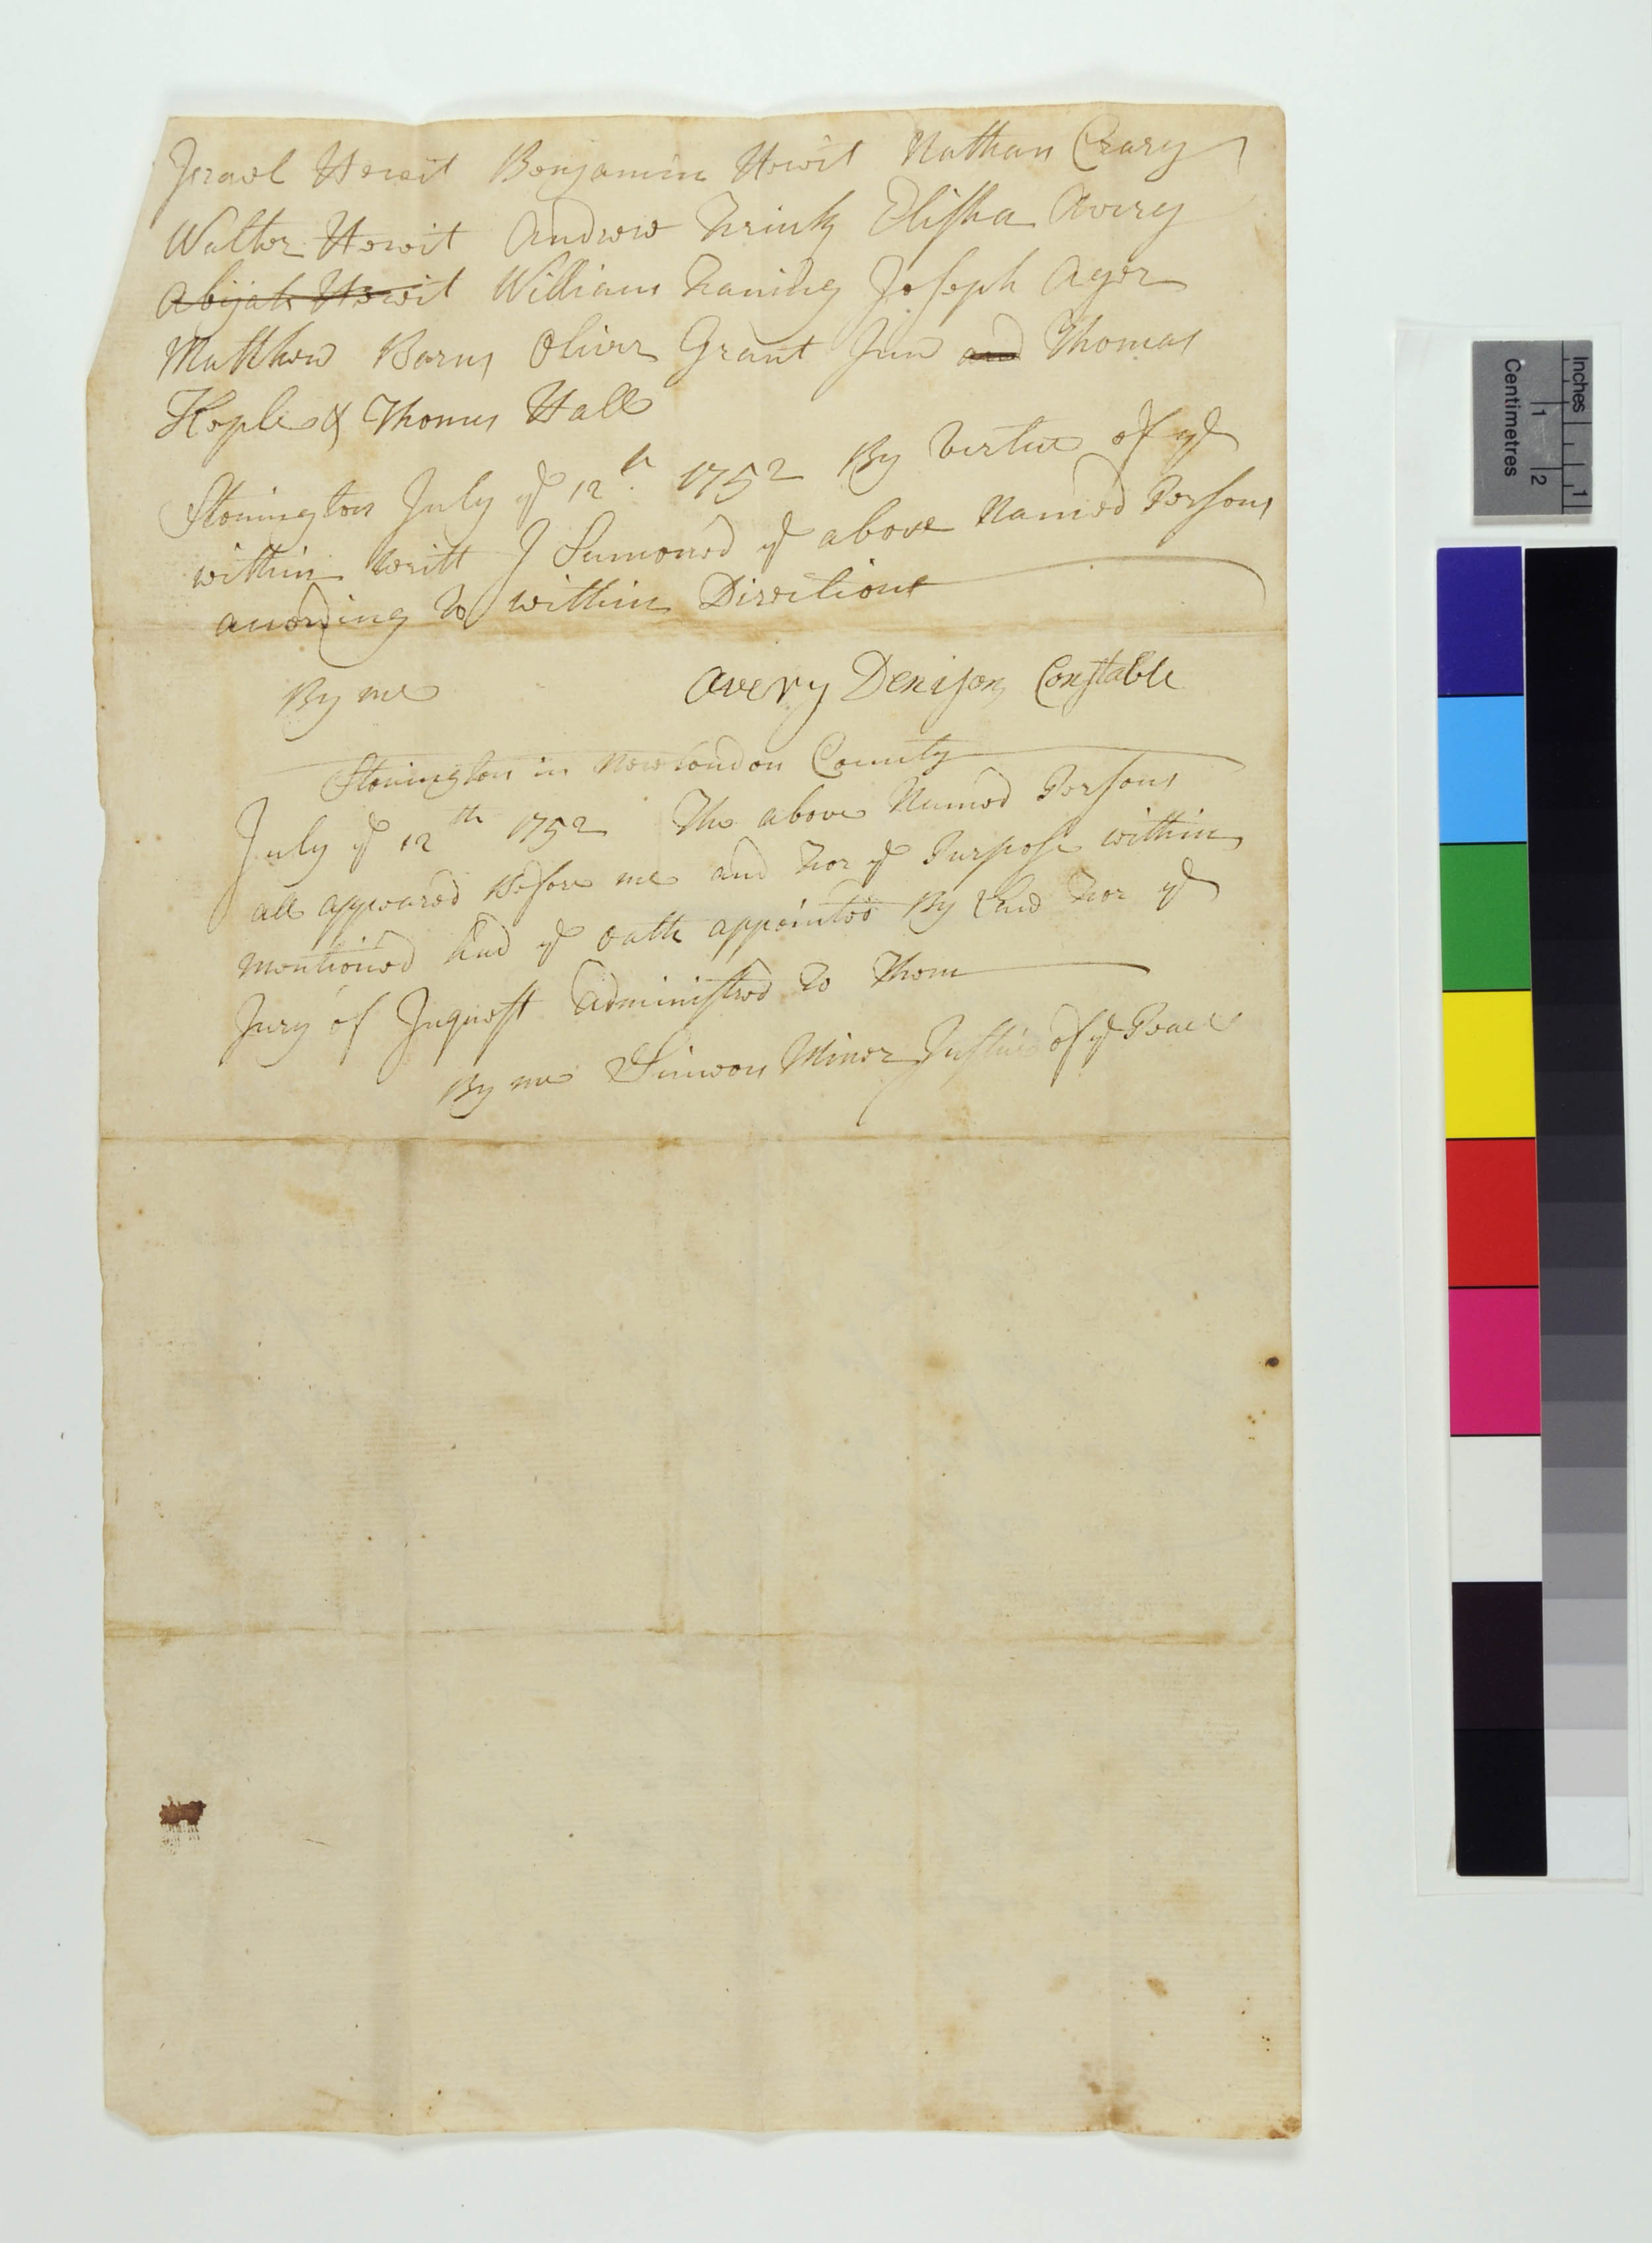 Israel Hewit Benjamin Hewit Nathan Crary
Walter Hewit Andrew Frink Elisha Avery
Abijah Hewit William Faning Joseph Ayer
Matthew Barns Oliver Grant Jun and Thomas
Holmes & Thomas Hall
Stonington July ye 12th 1752 By Virtue of ye
within Writt I Sumoned ye above Named Persons
according to within Directions
By me Avery Denison Constable
Stonington in New London County
July ye 12th 1752 The above Named Persons
all appeared Before me and For ye Purpose within
mentioned had ye oath appointed By Law For ye
Jury of Inquest Administred to Them
By me Simeon Miner Justice of ye Peace
Inches
Centimetres
1
2
1